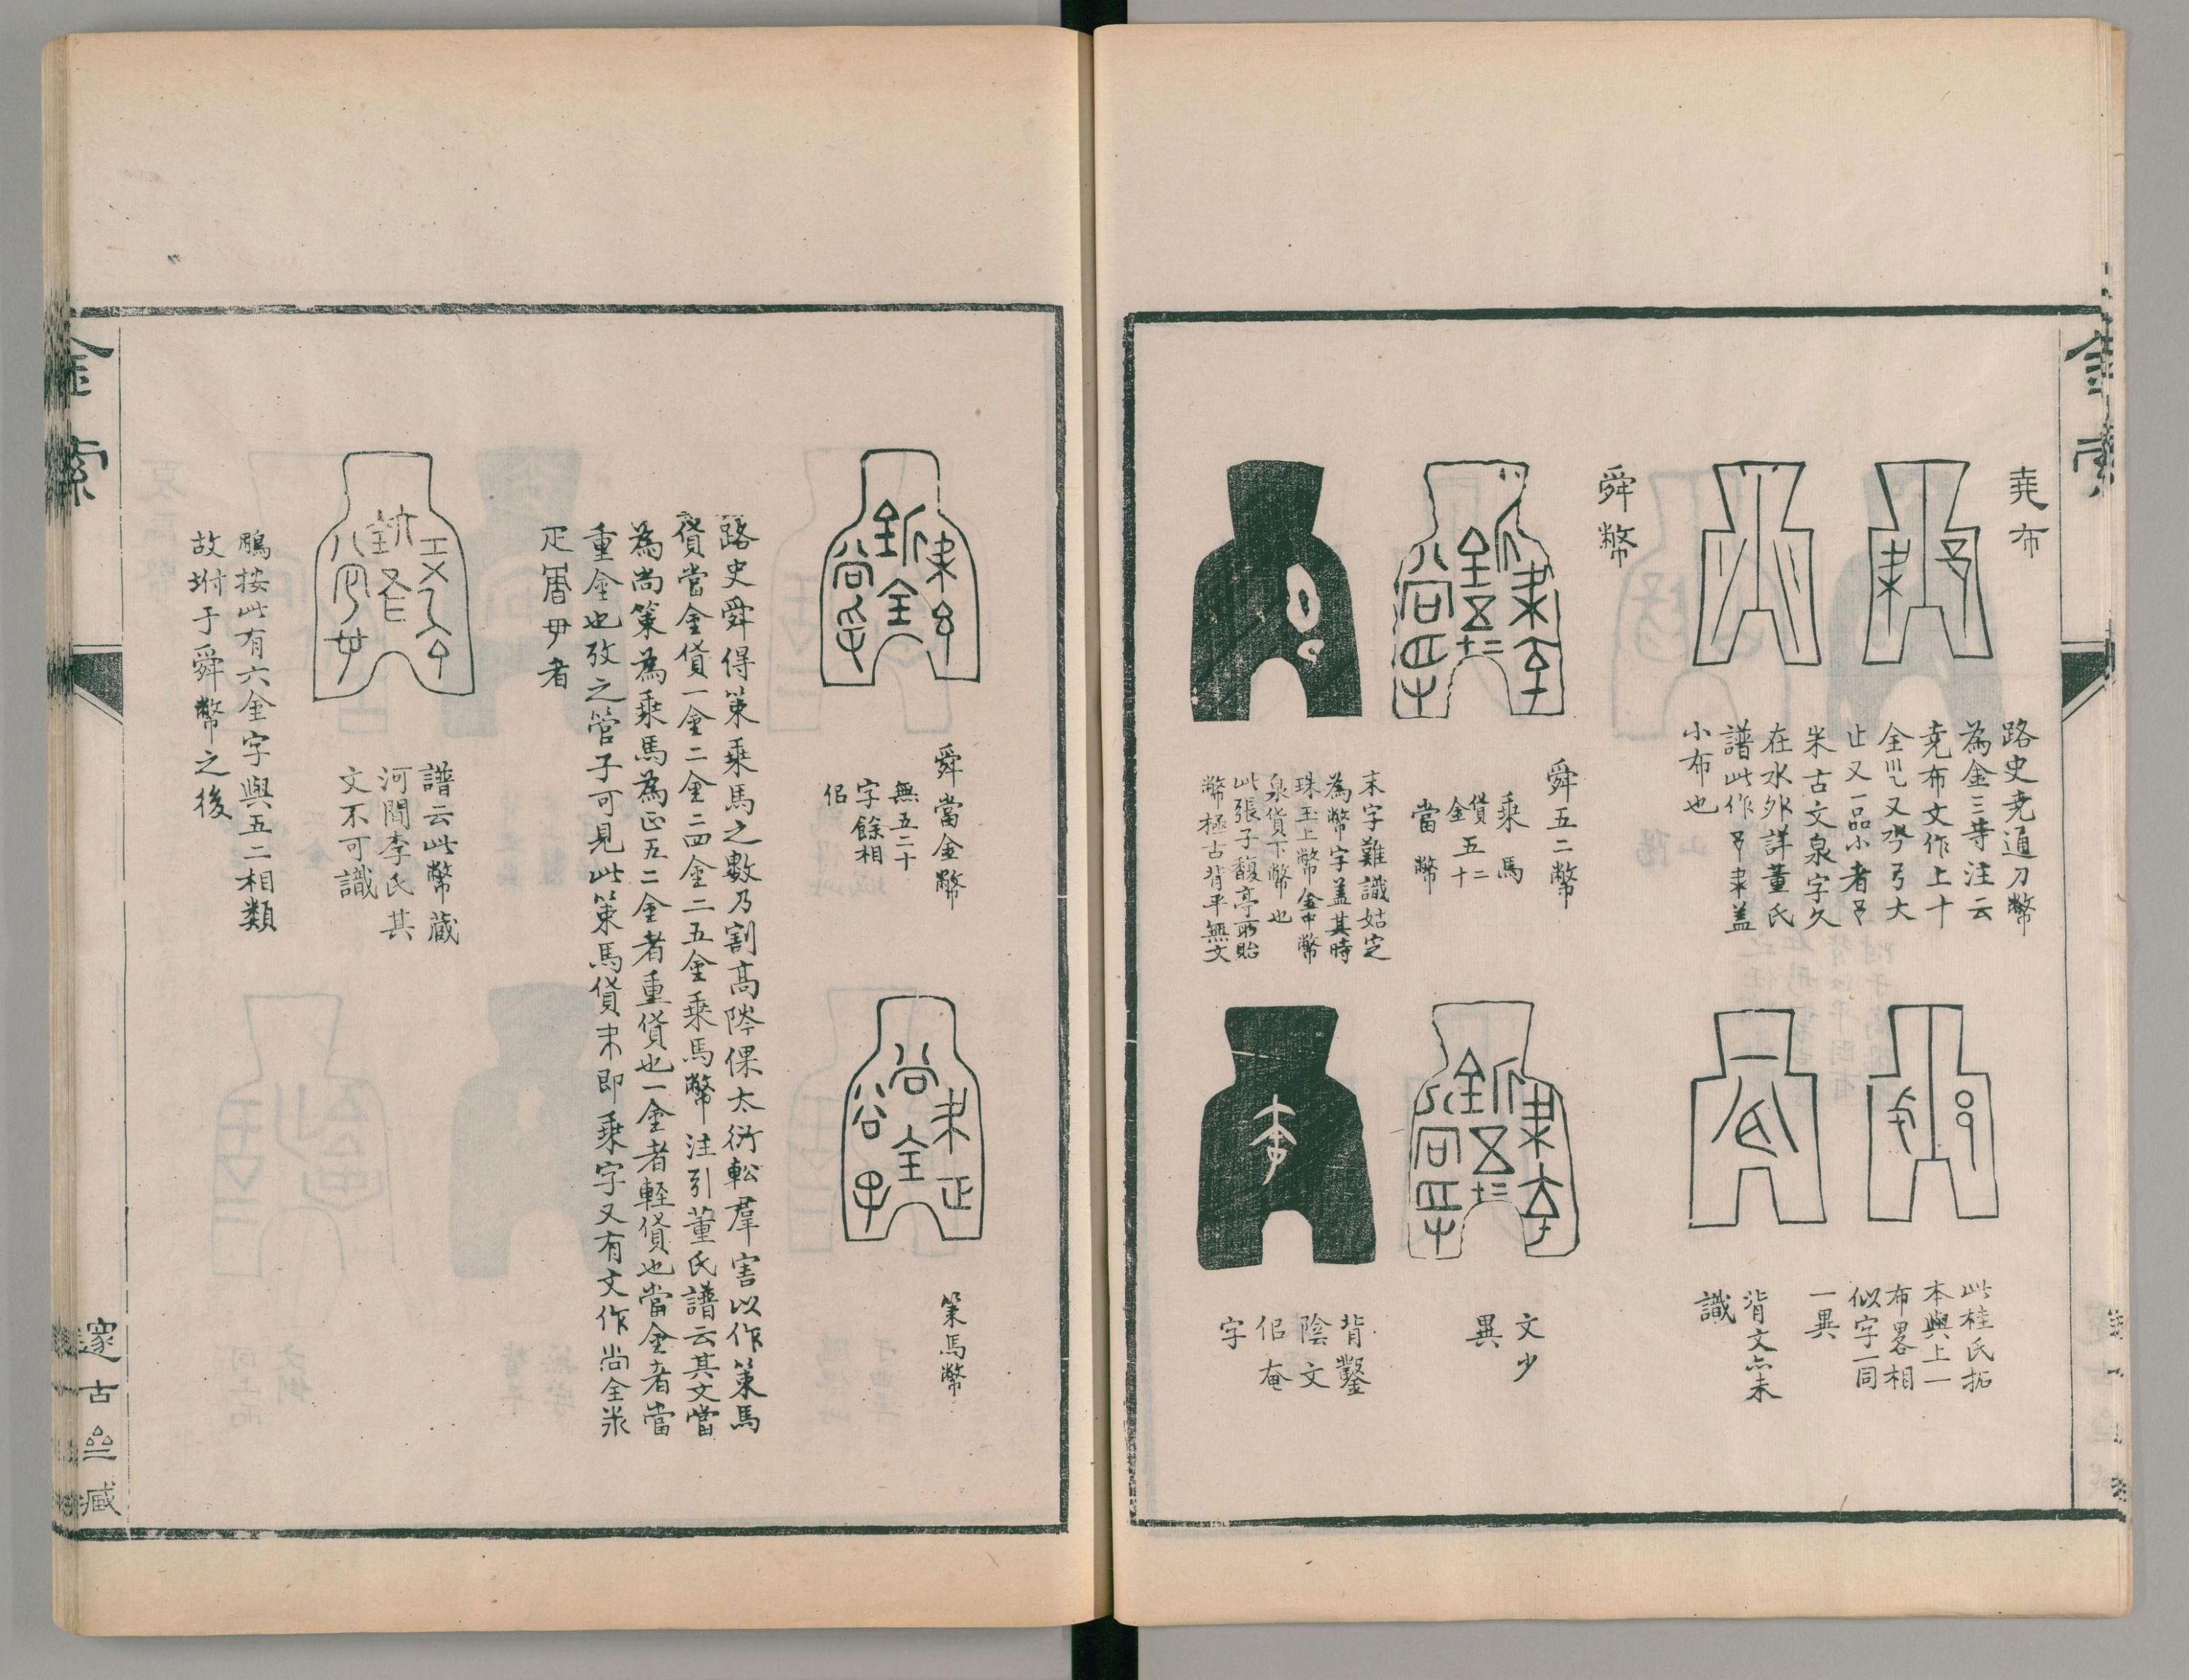 金索
堯布
路史堯通刀幣
為金三等注云
堯布文作上十
止又一品小者
米古文泉字久
在水外詳董氏
譜此作
小布也
此桂氏拓
本與上一
布畧相
似字一同
一異
背文亦未
識
舜幣
舜五二幣
乘馬
金貨五二十
當幣
末字難識姑定
為幣字蓋其時
珠玉上幣金中幣
泉貨下幣也
此張子馥亭所貽
幣極古背平無文
文少
異
背鑿
陰文
侶奄
字
舜當金幣
無五二十
字餘相
侶
策馬幣
路史舜得策乘馬之數乃割高陊倮太衍䡥羣害以作策馬
貨當金貨一金二金二四金二五金乘馬幣注引董氏譜云其文當
為尚策為乘馬為正五二金者重貨也一金者輕貨也當金者當
重金也攷之管子可見此策馬貨即乘字又有文作尚全
者
譜云此幣藏
河間李氏其
文不可識
鵬按此有六金字與五二相類
故坿于舜幣之後
金索
邃古
藏